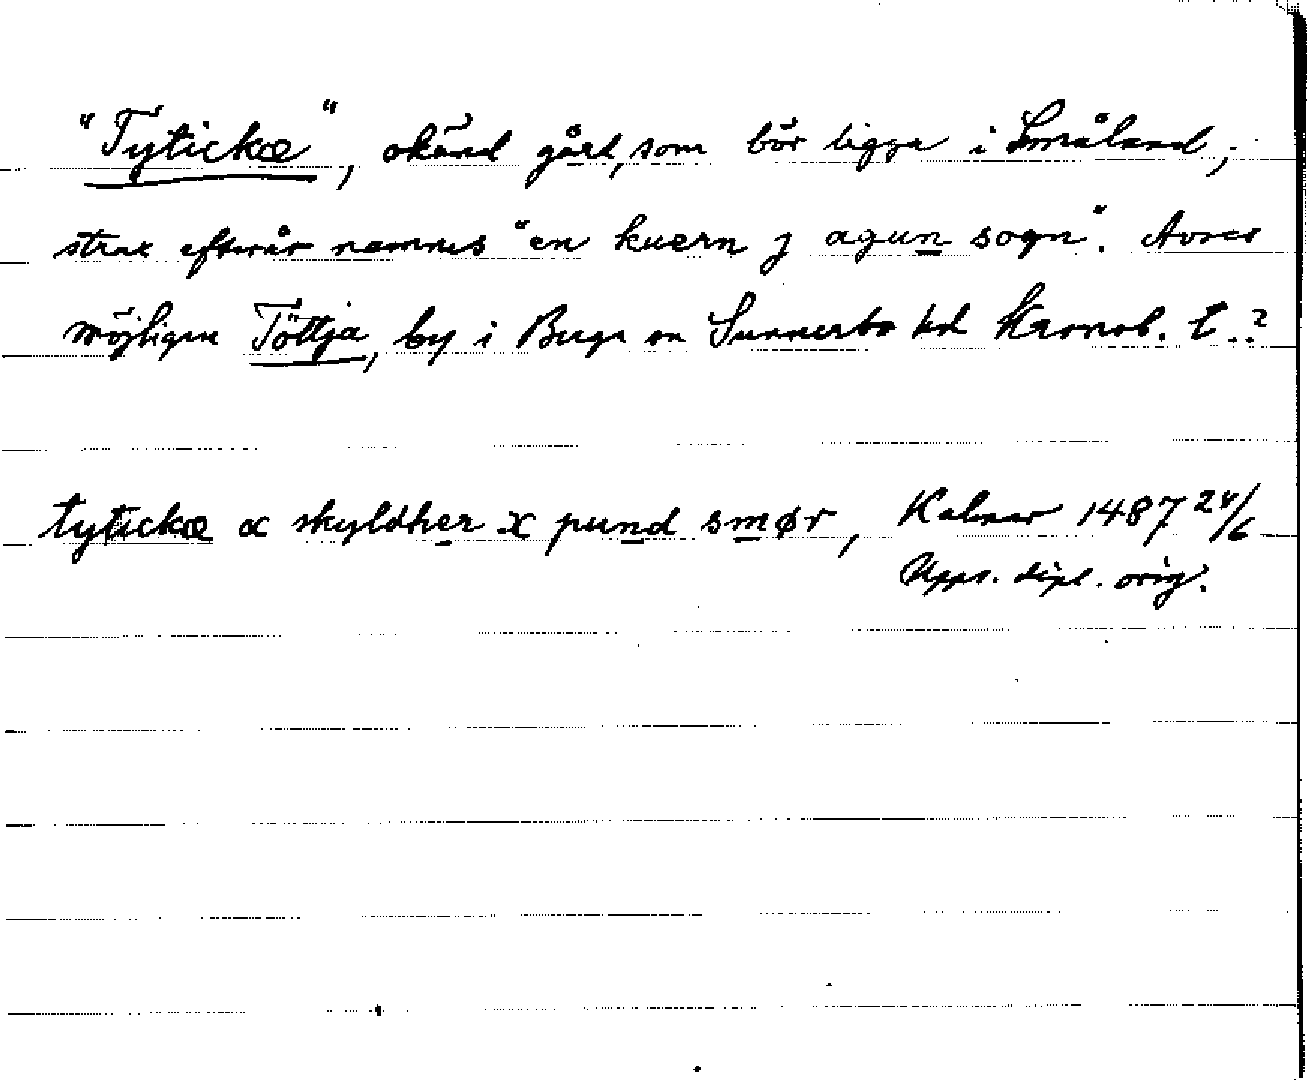 "Tytickæ", okänd gård, som bör ligga i Småland;
strax efteråt nämnes "en kuern j agun sogn". Avses
möjligen Töttja, by i Berga sn Sunnerbo hd Kronob. l.?
tytickæ α skyldher x pund smør, Kalmar 1487 24/6
Upps. dipl. orig.